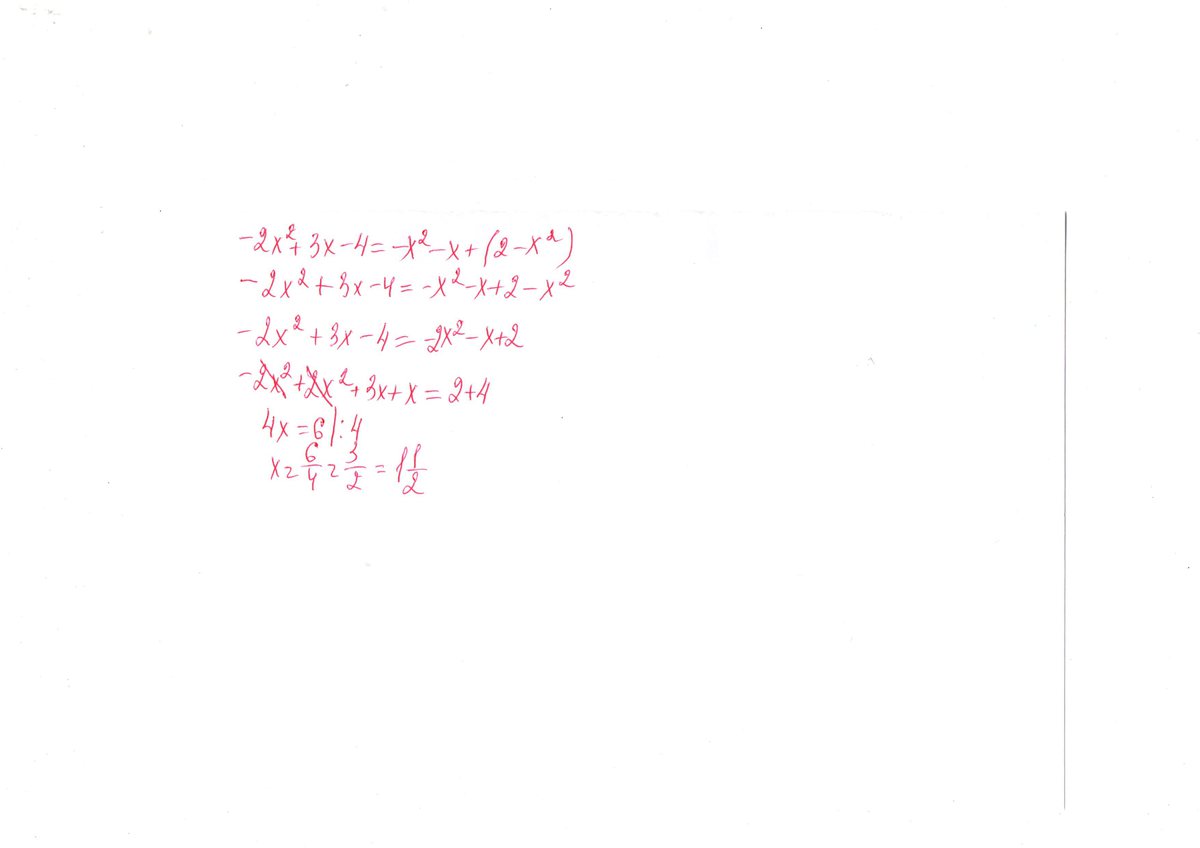 -2x²+3x-4=-x²-x+(2-x²)
-2x²+3x-4=-x²-x+2-x²
-2x²+3x-4=-2x²-x+2
-2x²+2x²+3x+x=2+4
4x=6|:4
x=6/4=3/2=1 1/2